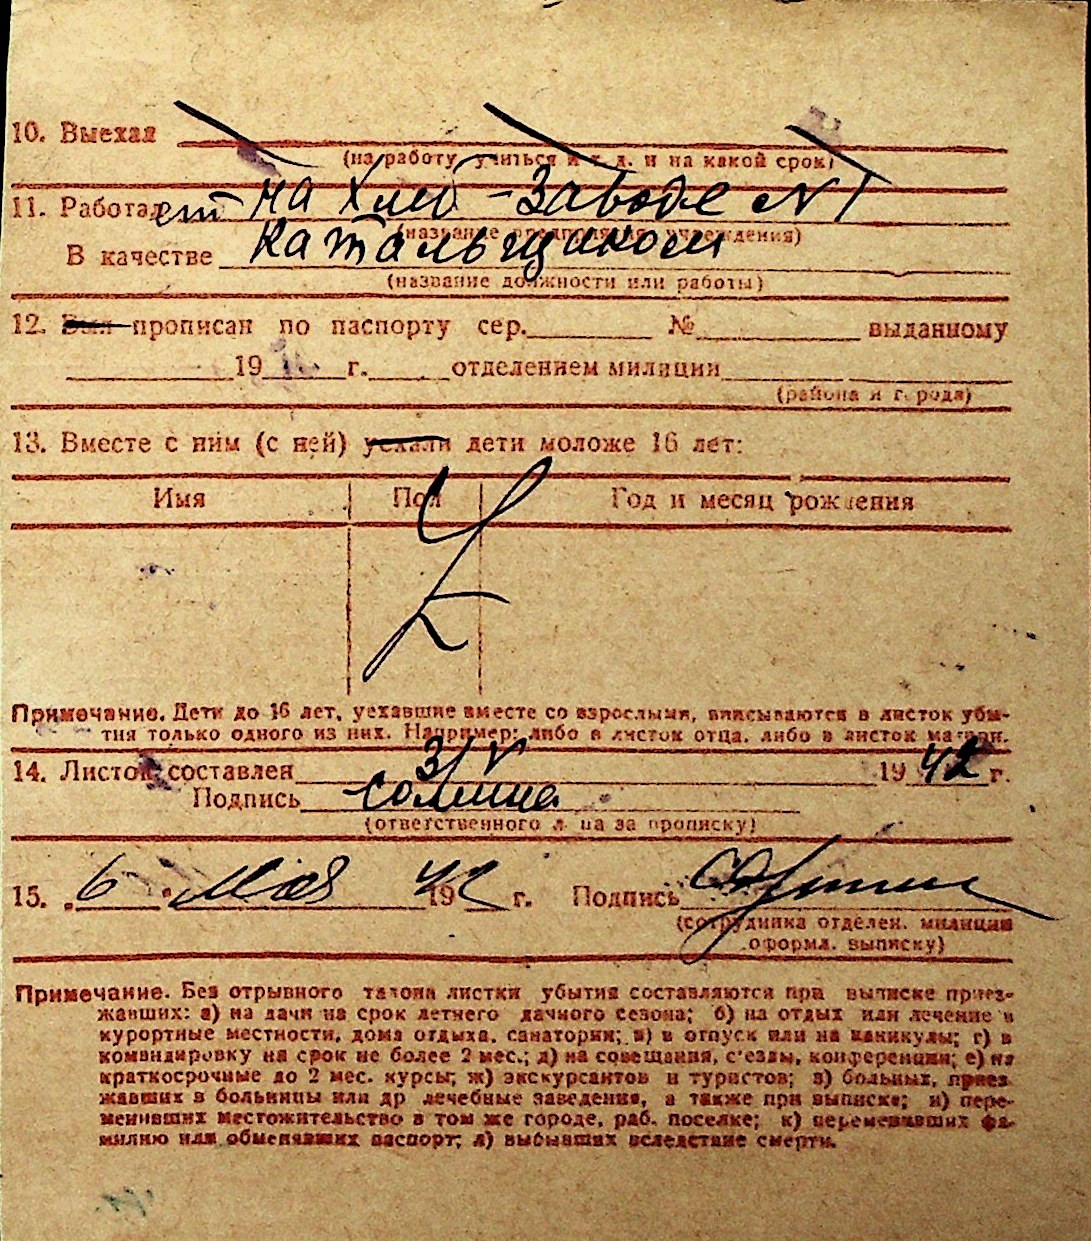 10. Выехал
(на работу учиться и т. д. и на какой срок)
11. Работает на Хлеб-Заводе №1
(название предприятия, учреждения)
В качестве Катальщиком
(название должности или работы)
12. Был прописан по паспорту сер. № выданному
19 г. отделением милиции
(района и города)
13. Вместе с ним (с ней) уехали дети моложе 16 лет:
Имя Пол Год и месяц рождения
Примечание. Дети до 16 лет, уехавшие вместе со взрослыми, вписываются в листок убы-
тия только одного из них. Например: либо в листок отца, либо в листок матери.
14. Листок составлен 3/V 1942 г.
Подпись
(ответственного лица за прописку)
15. "6" Мая 1942 г. Подпись
(сотрудника отделен. милиции
оформл. выписку)
Примечание. Без отрывного талона листки убытия составляются при выписке приез-
жавших: а) на дачи на срок летнего дачного сезона; б) на отдых или лечение в
курортные местности, дома отдыха, санатории; в) в отпуск или на каникулы; г) в
командировку на срок не более 2 мес.; д) на совещания, с'езды, конференции; е) на
краткосрочные до 2 мес. курсы; ж) экскурсантов и туристов; з) больных, приез
жавших в больницы или др лечебные заведения, а также при выписке; и) пере-
менивших местожительство в том же городе, раб. поселке; к) переменивших фа-
милию или обменявших паспорт; л) выбывших вследствие смерти.